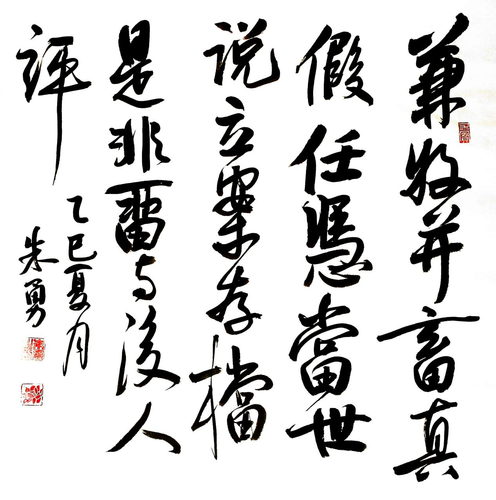 兼收并畜真
假任憑當世
说立案存檔
是非留与後人
评
乙巳夏月
朱勇